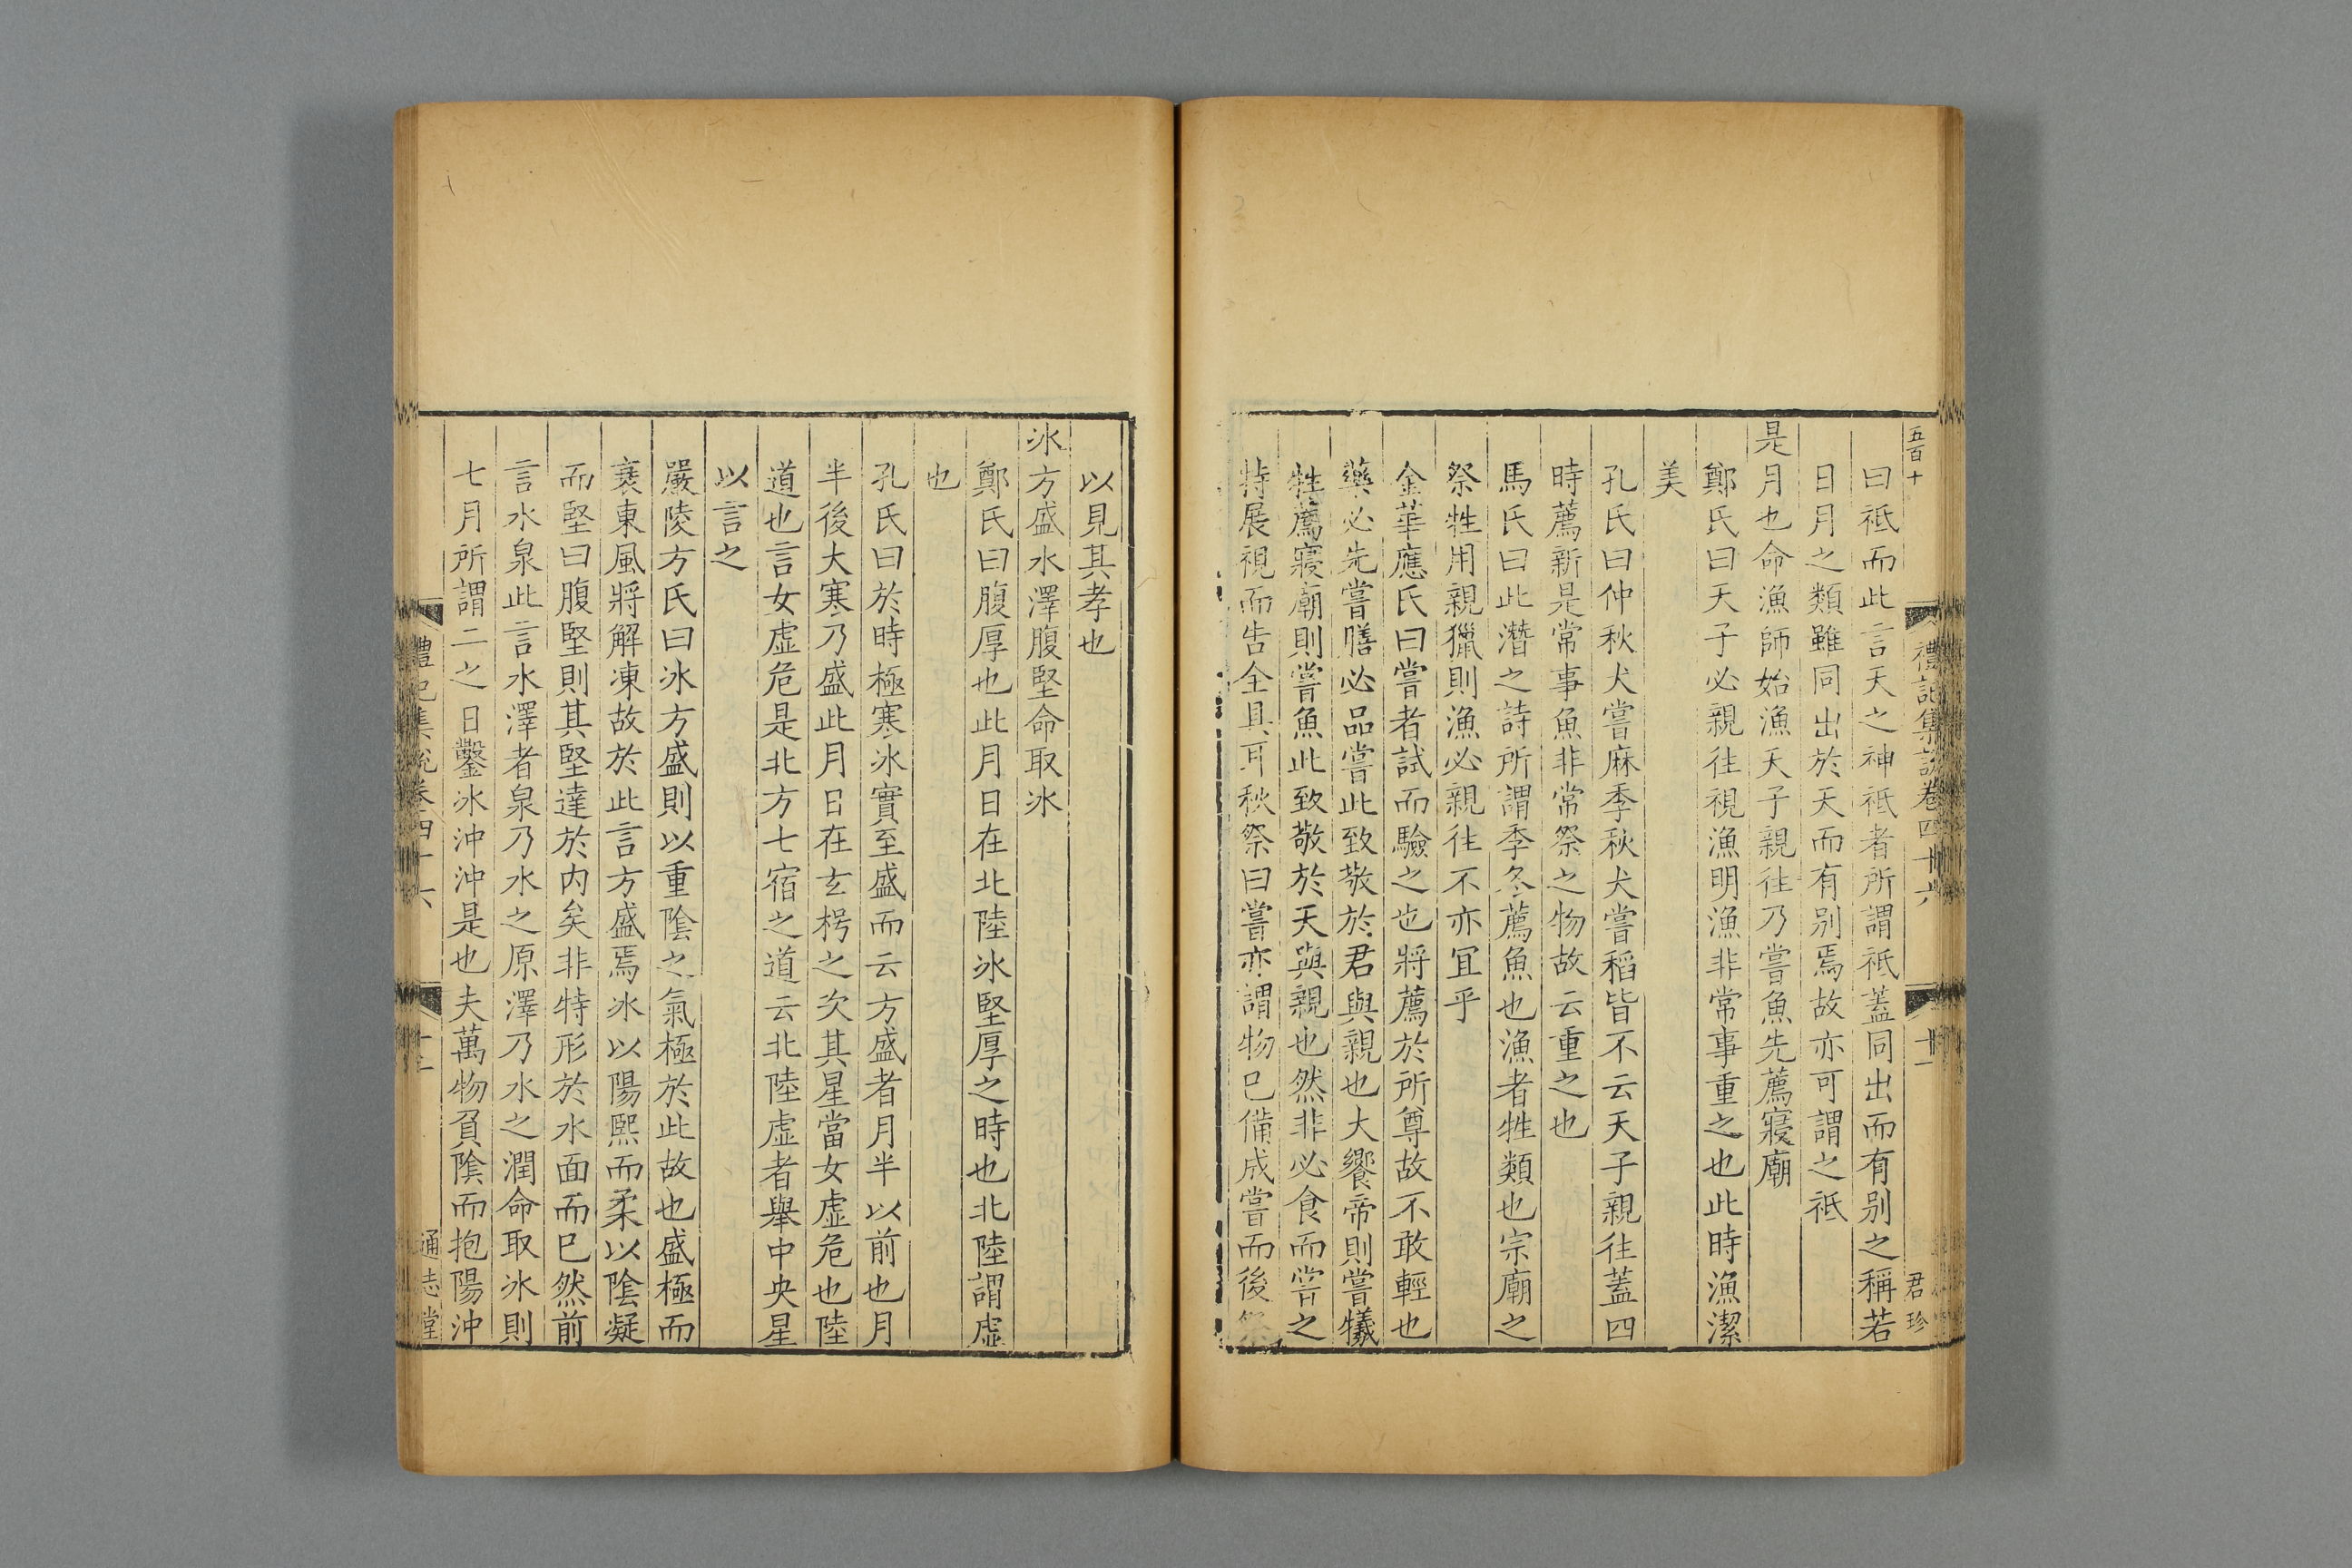 五百十
禮記集説卷四十六
十一
君珍
曰祇而此言天之神祇者所謂祇蓋同出而有别之稱若
日月之類雖同出於天而有别焉故亦可謂之祇
是月也命漁師始漁天子親往乃嘗魚先薦寢廟
鄭氏曰天子必親往視漁明漁非常事重之也此時漁潔
美
孔氏曰仲秋犬嘗麻季秋犬嘗稻皆不云天子親往蓋四
時薦新是常事魚非常祭之物故云重之也
馬氏曰此潛之詩所謂季冬薦魚也漁者牲類也宗廟之
祭牲用親獵則漁必親往不亦冝乎
金華應氏曰嘗者試而驗之也將薦於所尊故不敢輕也
藥必先嘗膳必品嘗此致敬於君與親也大饗帝則嘗犧
牲薦寢廟則嘗魚此致敬於天與親也然非必食而嘗之
特展視而告全具可秋祭曰嘗亦謂物已備成嘗而後祭
以見其孝也
冰方盛水澤腹堅命取冰
鄭氏曰腹厚也此月日在北陸冰堅厚之時也北陸謂虛
也
孔氏曰於時極寒冰實至盛而云方盛者月半以前也月
半後大寒乃盛此月日在玄枵之次其星當女虛危也陸
道也言女虛危是北方七宿之道云北陸虛者舉中央星
以言之
嚴陵方氏曰冰方盛則以重隂之氣極於此故也盛極而
衰東風將解凍故於此言方盛焉冰以陽熙而柔以隂凝
而堅曰腹堅則其堅達於内矣非特形於水面而已然前
言水泉此言水澤者泉乃水之原澤乃水之潤命取冰則
七月所謂二之日鑿冰沖沖是也夫萬物負隂而抱陽沖
禮記集説卷四十六
十二
通志堂